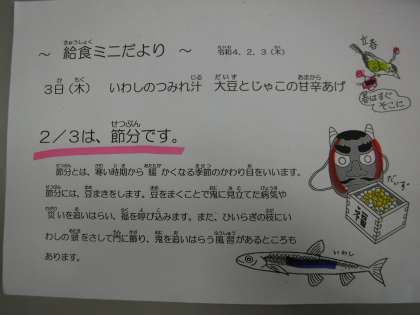 ～ 給食ミニだより ～ 令和4．2．3（木）
立春
3日（木） いわしのつみれ汁 大豆とじゃこの甘辛あげ
春はすぐそこに
2／3は、節分です。
節分とは、寒い時期から暖かくなる季節のかわり目をいいます。
節分には、豆まきをします。豆をまくことで鬼に見立てた病気や
災いを追いはらい、福を呼び込みます。また、ひいらぎの枝にい
わしの頭をさして門に飾り、鬼を追いはらう風習があるところも
あります。
だいず
大豆
いわし